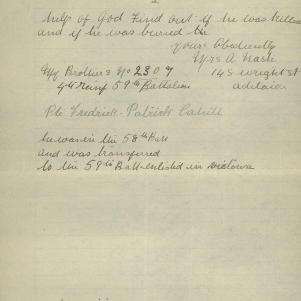 help of God Find out if he was killed
and if he was buried the
Yours Obediently
Mrs A Nash
My Brothers No 2307 148 wright st
4th reinf 59th Battalion adelaide
Pte Fredrick Patrick Cahill
he was in the 58th Batt
and was transferred
to the 59th Batt enlisted in Victoria